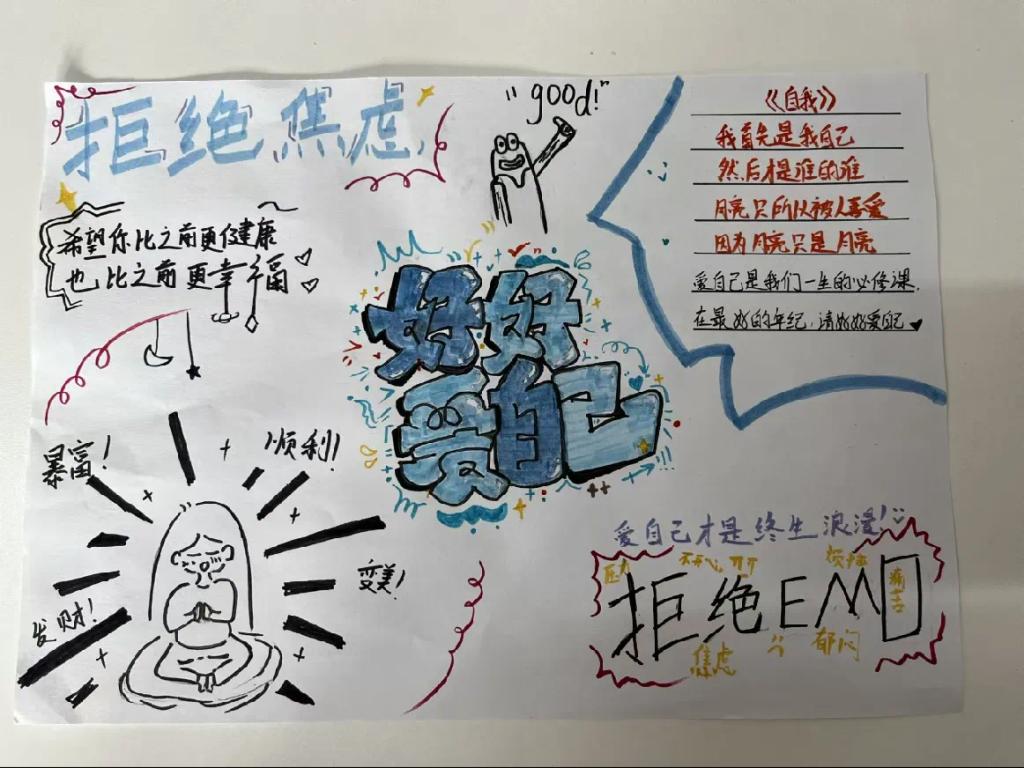 拒绝焦虑
"good!"
希望你比之前更健康
也比之前更幸福
《自我》
我首先是我自己
然后才是谁的谁
月亮只所以被人喜爱
因为月亮只是月亮
爱自己是我们一生的必修课.
在最好的年纪,请好好爱自己
好好
爱自己
暴富!
顺利!
变美!
发财!
爱自己才是终生浪漫!
压力
不开心
烦恼
痛苦
拒绝EMO
焦虑
郁闷